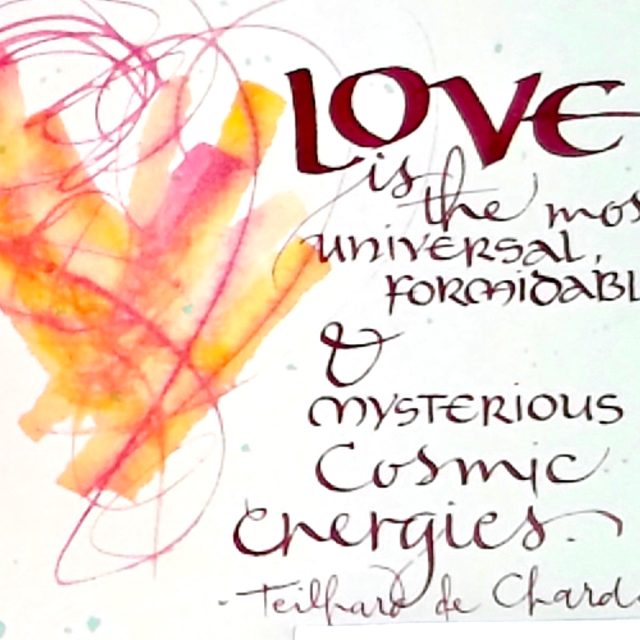 LOVE
is
the mos
UNIVERSAL,
FORMIDABL
&
MYSTERIOUS
Cosmic
energies.
- Teilhard de Chard